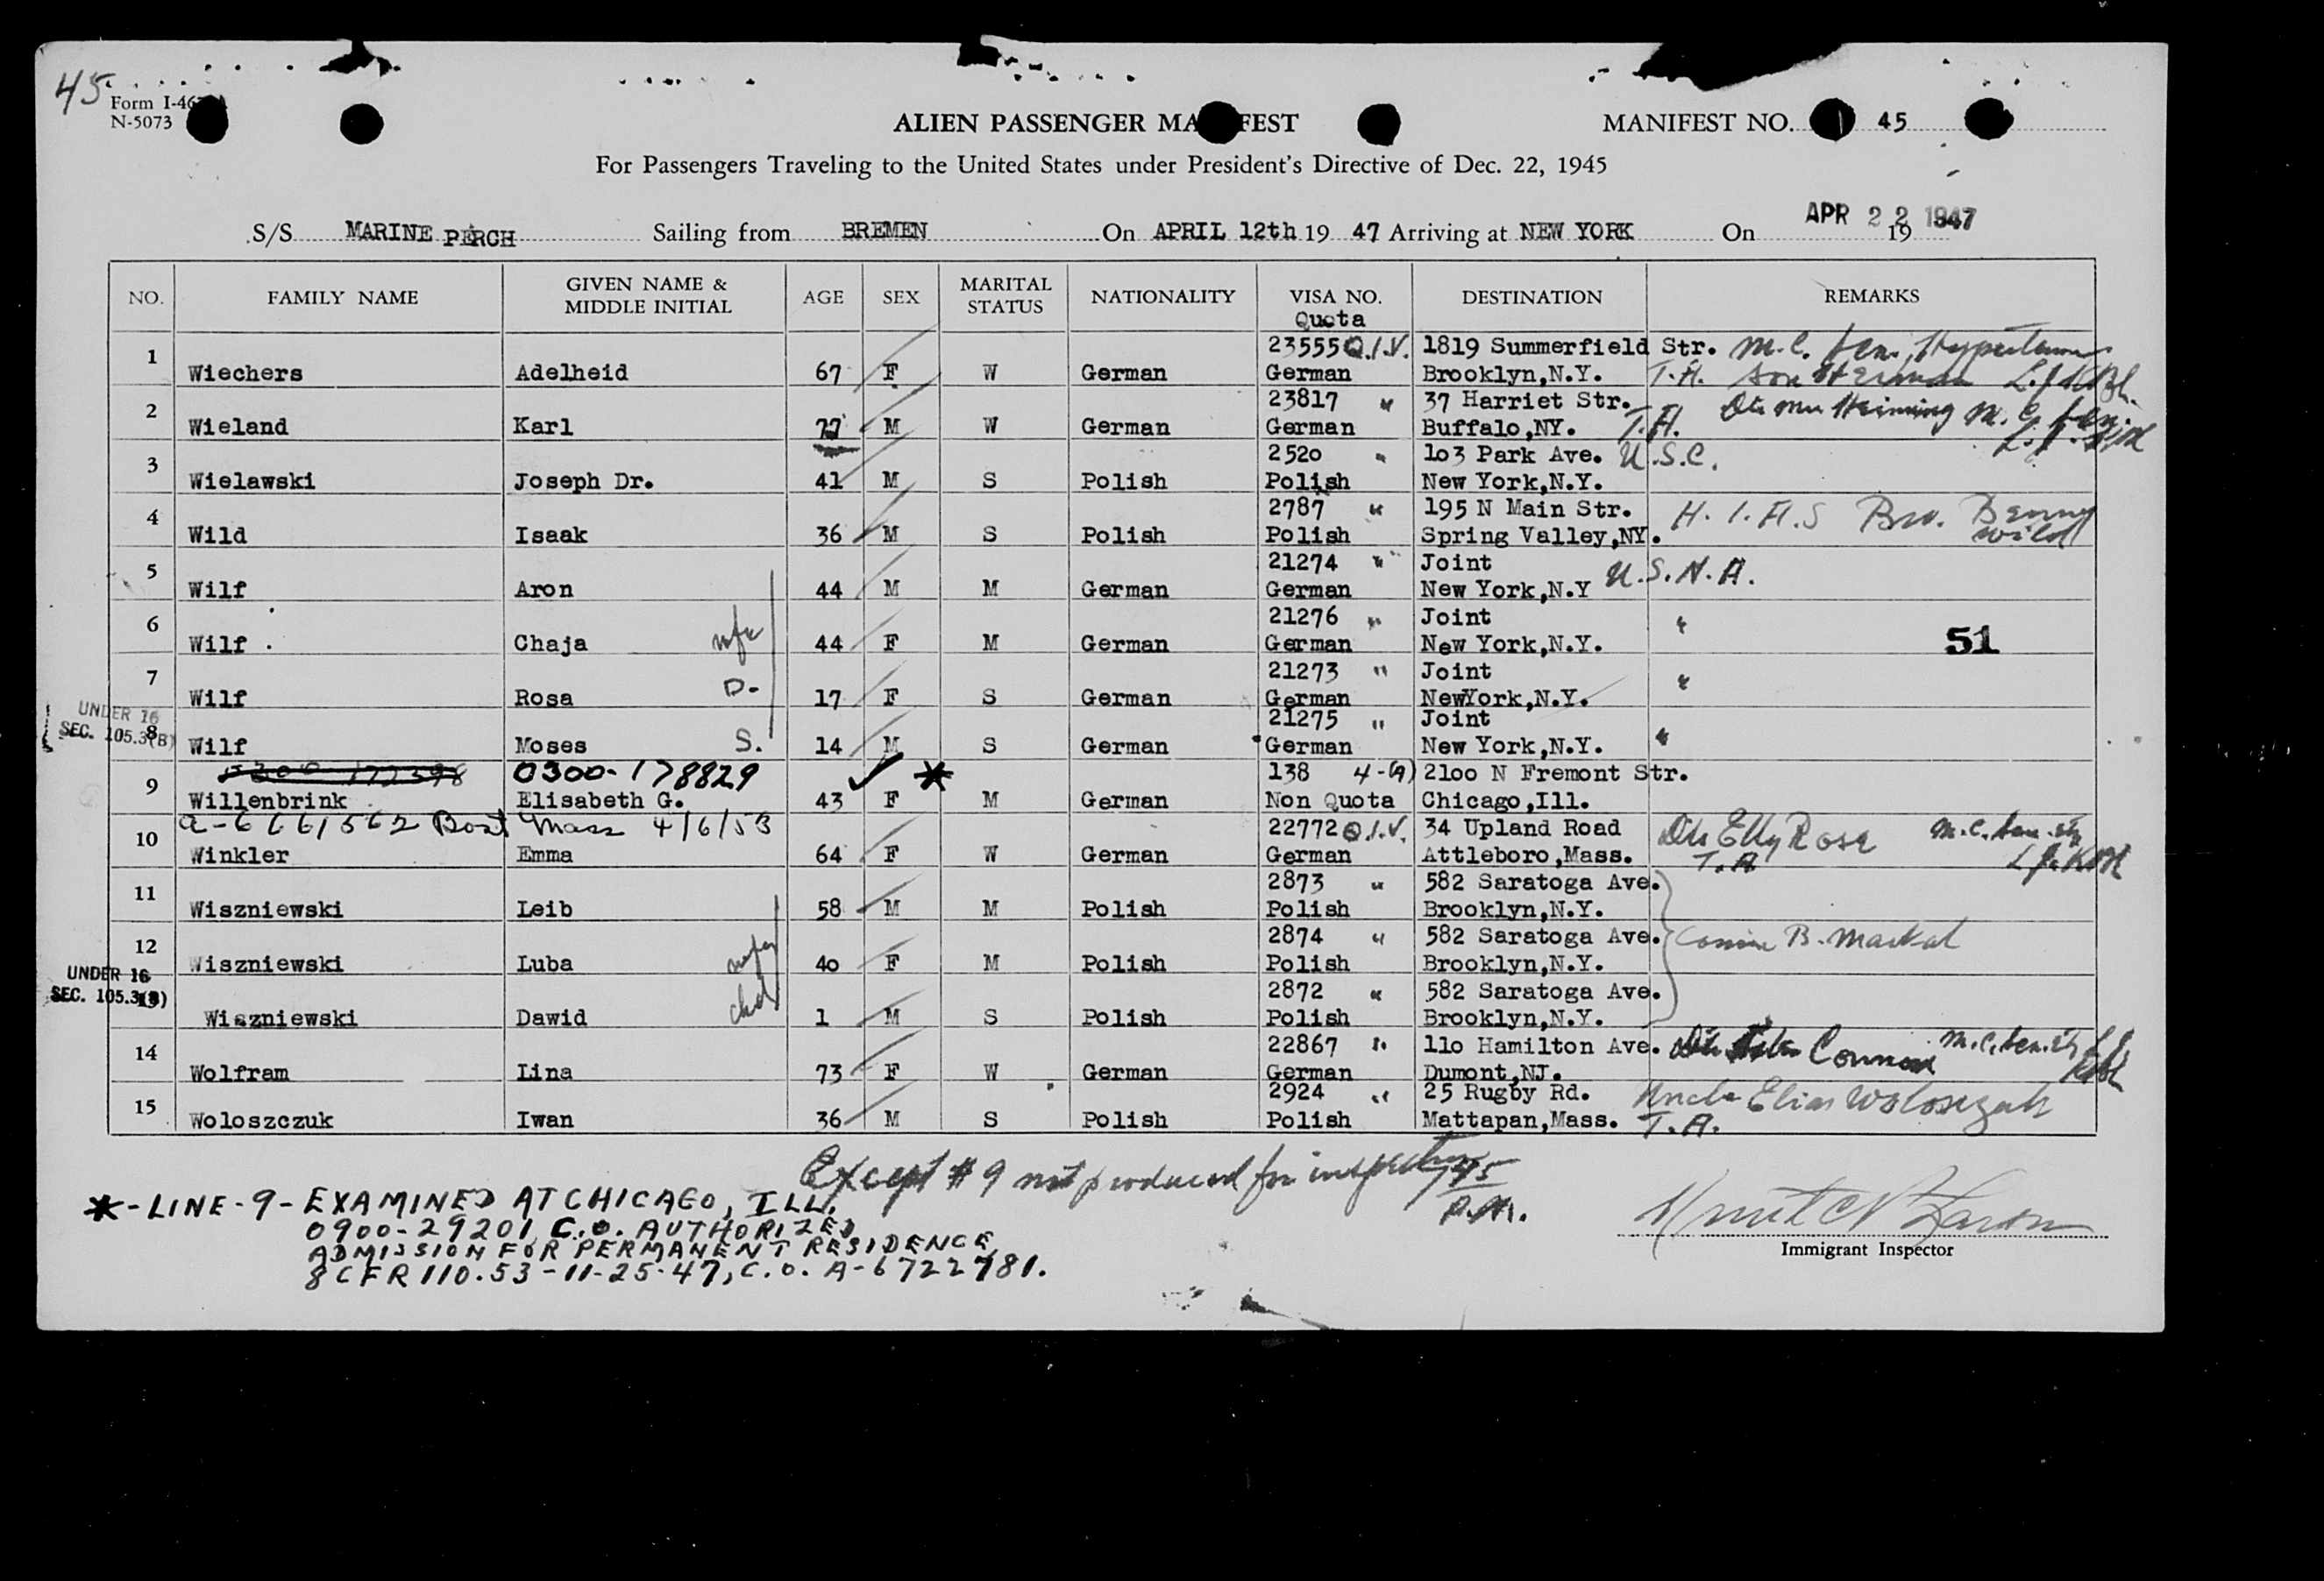 45
Form I-46
N-5073
ALIEN PASSENGER MA FEST
MANIFEST NO. 45
For Passengers Traveling to the United States under President's Directive of Dec. 22, 1945
S/S MARINE PERCH Sailing from BREMEN On APRIL 12th 19 47 Arriving at NEW YORK On APR 22 1947 19
NO. FAMILY NAME GIVEN NAME & MIDDLE INITIAL AGE SEX MARITAL STATUS NATIONALITY VISA NO. Quota DESTINATION REMARKS
1 Wiechers Adelheid 67 F W German 23555 Q.I.V. German 1819 Summerfield Str. Brooklyn,N.Y. M.C. Sen. T.A. Son Herman
2 Wieland Karl 77 M W German 23817 " German 37 Harriet Str. Buffalo,NY. T.A. M.C.
3 Wielawski Joseph Dr. 41 M S Polish 2520 " Polish 103 Park Ave. New York,N.Y. U.S.C.
4 Wild Isaak 36 M S Polish 2787 " Polish 195 N Main Str. Spring Valley,NY. H.I.A.S Bro. Benny Wild
5 Wilf Aron 44 M M German 21274 " German Joint New York,N.Y U.S.N.A.
6 Wilf Chaja wfe 44 F M German 21276 " German Joint New York,N.Y. "
51
7 Wilf Rosa D- 17 F S German 21273 " German Joint NewYork,N.Y. "
UNDER 16
SEC. 105.3(B)
8 Wilf Moses S. 14 M S German 21275 " German Joint New York,N.Y. "
0300-178829
9 Willenbrink Elisabeth G. 43 F M German 138 4-(9) Non Quota 2100 N Fremont Str. Chicago,Ill.
a-6661562 Bost Mass 4/6/53
10 Winkler Emma 64 F W German 22772 Q.I.V. German 34 Upland Road Attleboro,Mass. Elly Rose T.A M.C. Sen.
11 Wiszniewski Leib 58 M M Polish 2873 " Polish 582 Saratoga Ave. Brooklyn,N.Y.
12 Wiszniewski Luba 40 F M Polish 2874 " Polish 582 Saratoga Ave. Brooklyn,N.Y. Cousin B.
UNDER 16
SEC. 105.3(B)
13 Wiszniewski Dawid chd 1 M S Polish 2872 " Polish 582 Saratoga Ave. Brooklyn,N.Y.
14 Wolfram Lina 73 F W German 22867 " German 110 Hamilton Ave. Dumont,NJ. M.C. Sen.
15 Woloszczuk Iwan 36 M S Polish 2924 " Polish 25 Rugby Rd. Mattapan,Mass. Uncle Elias T.A.
Except #9 not produced for inspection
P.M.
*-LINE-9-EXAMINED AT CHICAGO, ILL.
0900-29201 C.O. AUTHORIZED
ADMISSION FOR PERMANENT RESIDENCE
8 CFR 110.53-11-25-47, C.O. A-6722781.
Immigrant Inspector